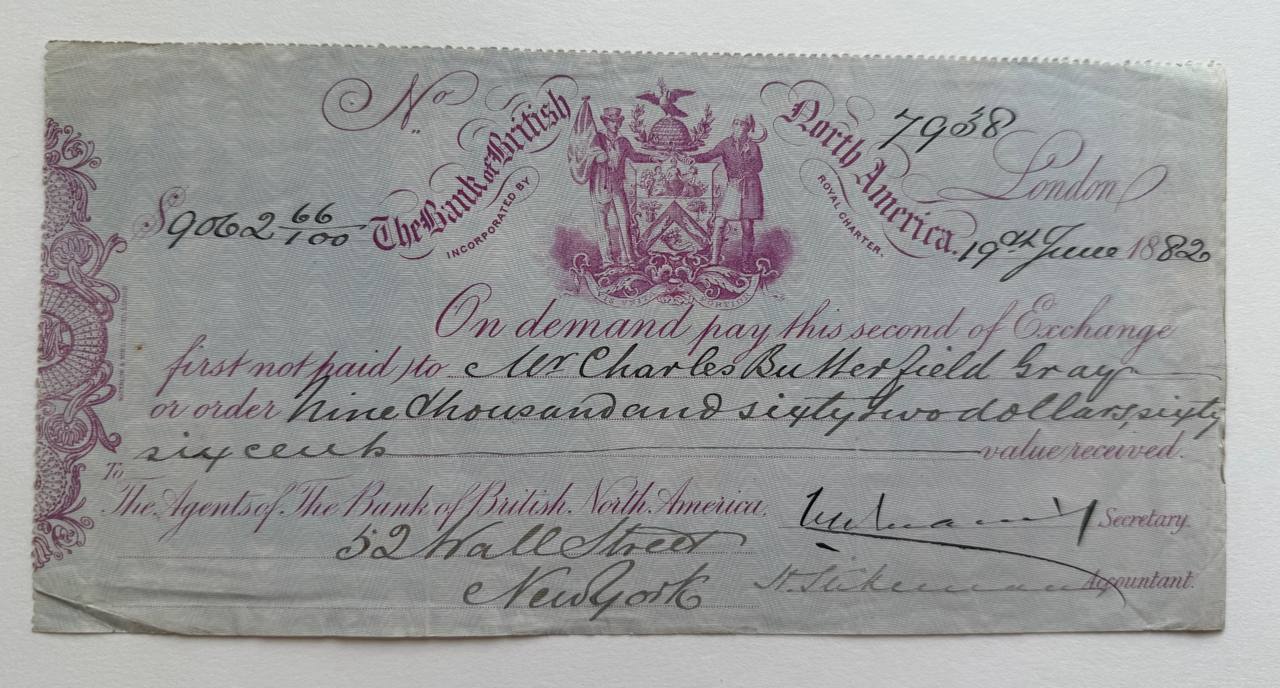 No 7938
The Bank of British North America.
INCORPORATED BY ROYAL CHARTER.
London
$9062 66/100
19th June 1882
On demand pay this second of Exchange
first not paid) to Mr Charles Butterfield Gray
or order Nine thousand and sixty two dollars, sixty
six cents value received.
To
The Agents of The Bank of British North America,
52 Wall Street
New York
Secretary.
Accountant.